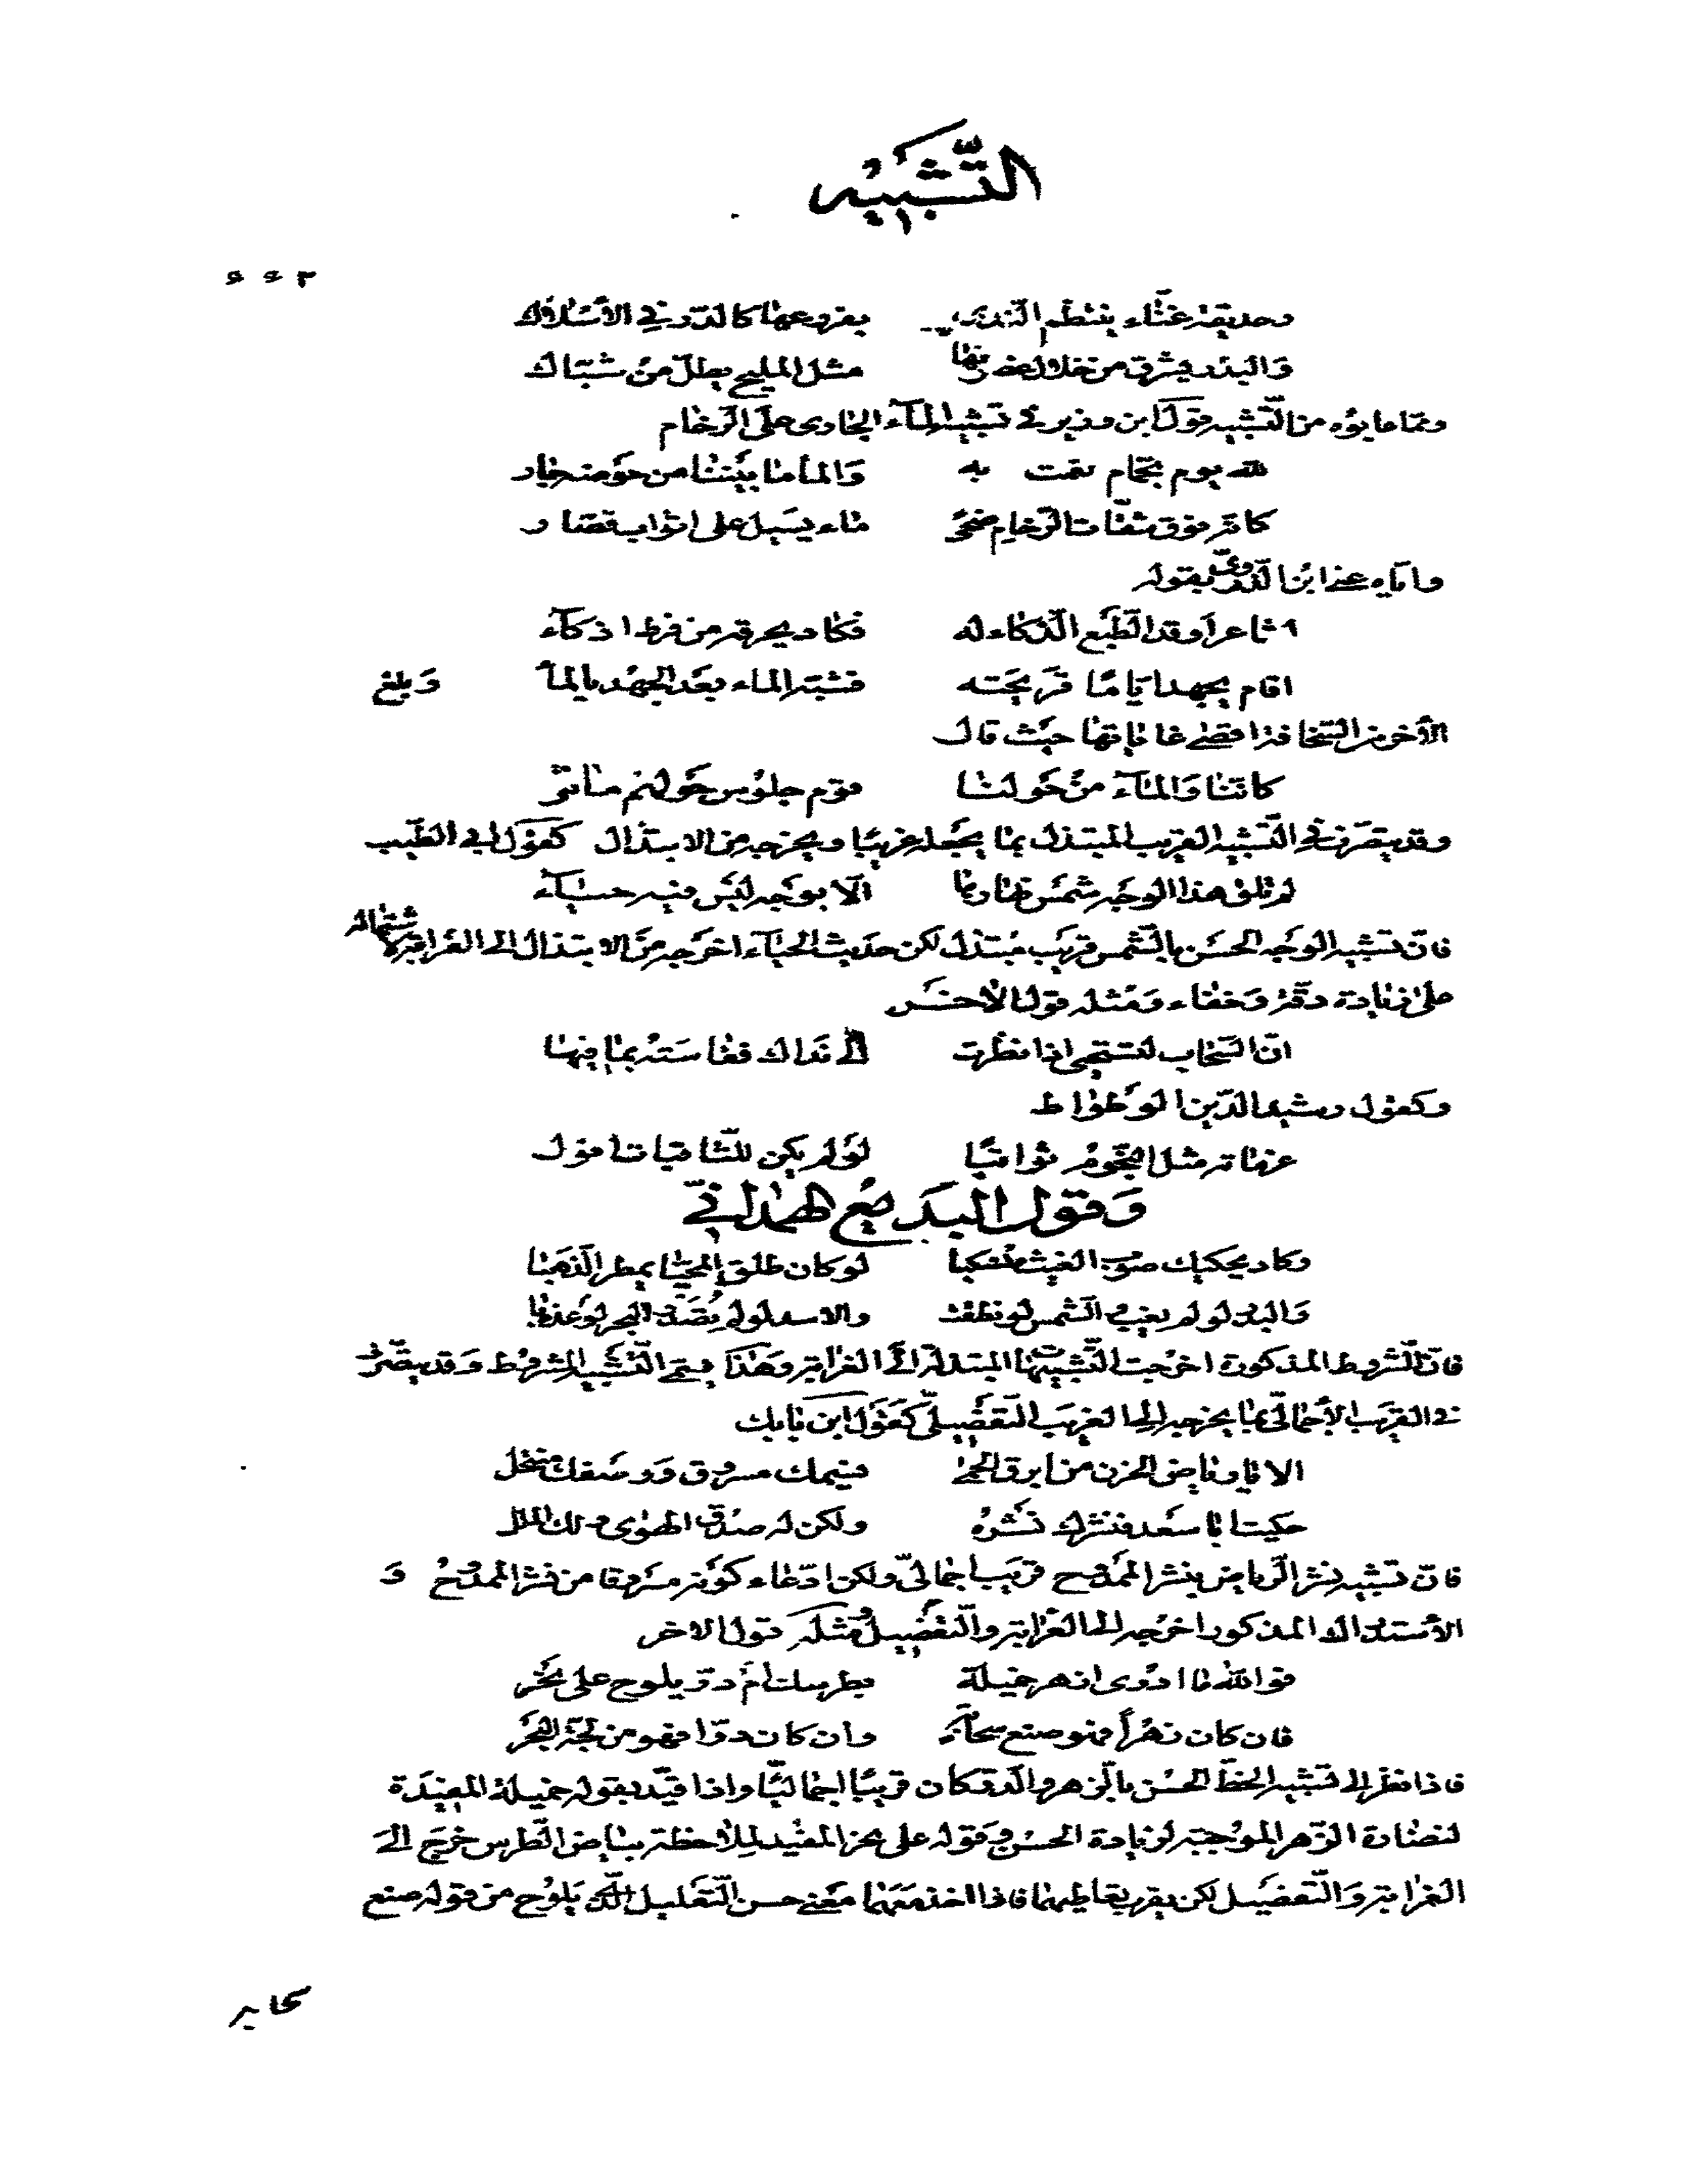 التَّشبيه
وحديقة غنّاء ينتظم الندى بفروعها كالدّر في الأسلاك
وَالبدر يشرق من خلال غصونها مثل المليح يطلّ من شبّاك
وممّا عابوه من التّشبيه قول ابن وزير في تشبيه المآء الجاري على الرّخام
لله يوم بحمّام نعمت به وَالمأ ما بيننا من حوضه جار
كانّه فوق شفّات الرّخام ضحى ماء يسيل على اثواب قصّار
وما تاه عنه ابن الذروي بقوله
وشاعر أوقد الطّبع الذّكاء له فكاد يحرقه من فرط اذكآء
اقام يجهد ايّامًا قريحته فشبّه الماء بعد الجهد بالمأ وَبلغ
الأخر من السّخافة اقصى غاياتها حيث قال
كانّنا وَالمآء من حَولنا قوم جلوس حَولهم مآء
وقد يتصرّف في التّشبيه القريب المبتذل بما يجعله غريبًا ويخرجه من الابتذال كقول ابي الطّيب
لم تلق هذا الوجه شمس نهارنا الّا بوَجه ليس فيه حيآء
فانّ تشبيه الوَجه الحسن بالشّمس قريب مبتذل لكن حديث الحيآء اخرجه من الابتذال الى الغرابة لاشتماله
على زيادة دقّة وَخفاء وَمثله قول الأخر
انّ السّحاب لتستحيى اذا نظرت الى نداك فقاسته بما فيها
وكقول رشيد الدّين الوَطواط
عزماته مثل النّجوم ثواقبًا لو لم يكن للثّاقبات افول
وَقول البَديع الهمدانيّ
وكاد يحكيك صوب الغيث منسكبا لو كان طلق المحيّا يمطر الذّهبا
وَالبدر لو لم يغب والشّمس لو نطقت والاسد لو لم تُصَد والبحر لو عذبا
فانّ الشّروط المذكورة اخرجت التّشبيهات المبتذلة الى الغرابة وهٰذا يسمّى التّشبيه المشروط وَقد يتصرّف
في القريب الأجماليّ بما يخرجه الى الغريب التّفضيليّ كقول ابن بابك
الا يا رياض الحزن من ابرق الحمى نسيمك مسروق وَوصفك منتحل
حكيت ابا سعد فنشرك نشره ولكن له صدق الهوى ولك الملل
فانّ تشبيه نشر الرّياض بنشر الممدوح قريب اجماليّ ولكن ادّعاء كونه مسروقا من نشر الممدوح وَ
الأستدراك المذكور اخرجه الى الغرابة والتّفضيل وَمثله قول الاخر
فوالله ما ادرى ازهر خميلة بطرسك أم درّ يلوح على نحر
فان كان زهرًا فهو صنع سحابة وان كان درّا فهو من لجّة البحر
فاذا نظر الى تشبيه الخطّ الحسن بالزّهر والدّر كان قريبًا اجماليًّا واذا قيّد بقوله خميلة المفيدة
لنضارة الزّهر الموجبة لزيادة الحسن وَقوله على نحر المفيد لملاحظة بياض الطّرس خرج الى
الغرابة وَالتّفضيل لكن بقرب تعاطيهما فاذا اخذ معهما معنى حسن التّعليل الّذي يلوح من قوله صنع
سحابة